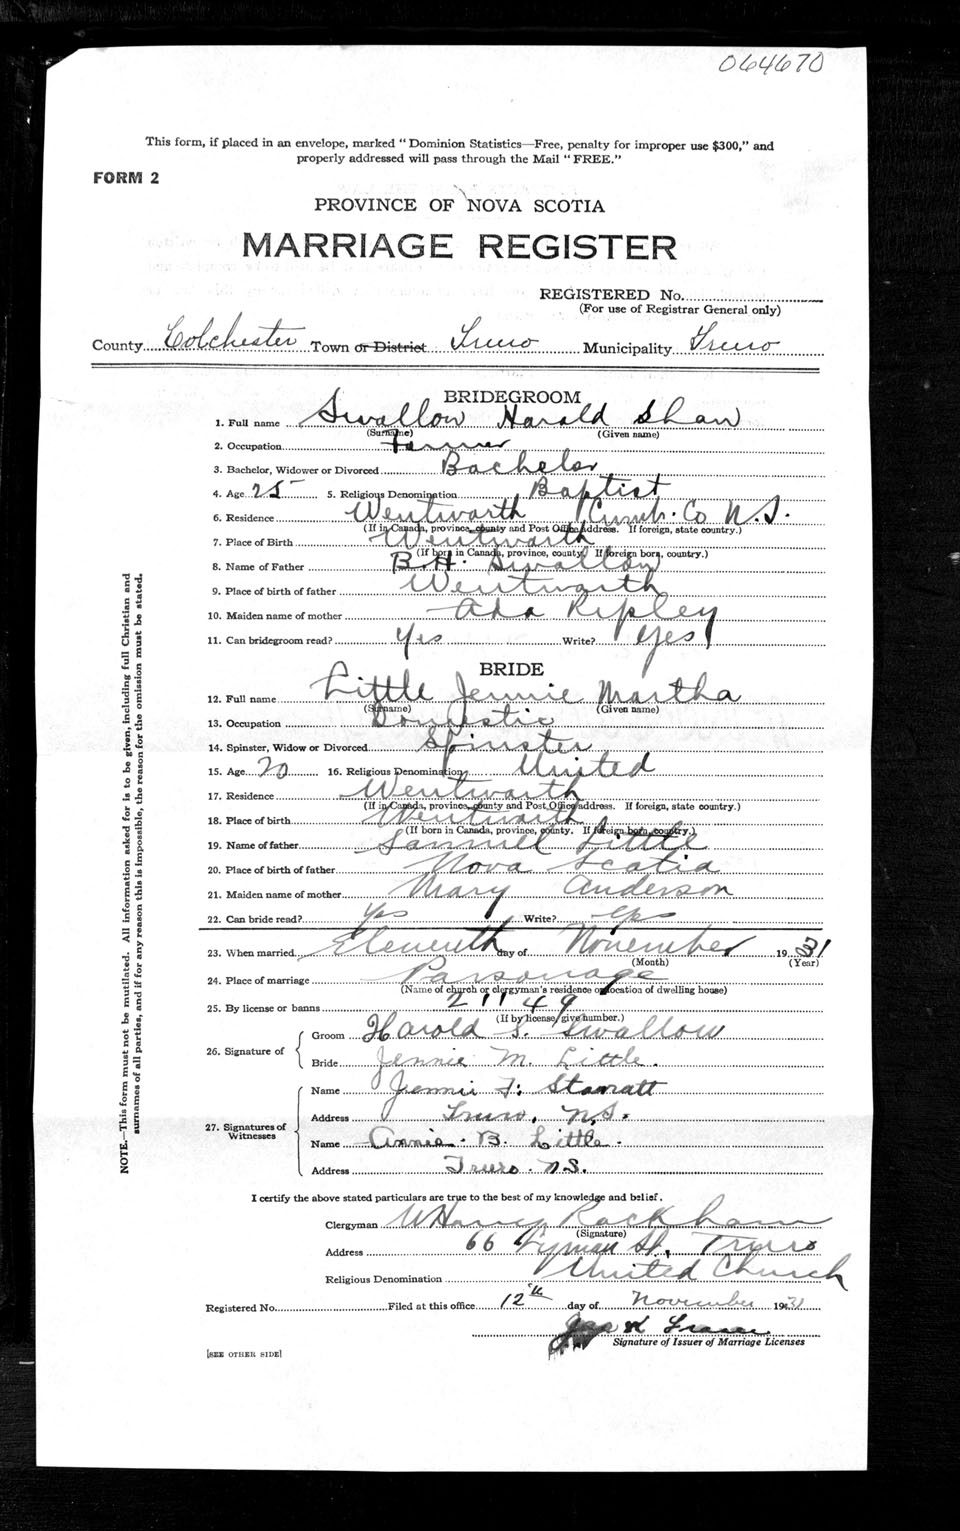 064670
This form, if placed in an envelope, marked "Dominion Statistics—Free, penalty for improper use $300," and
properly addressed will pass through the Mail "FREE."
FORM 2
PROVINCE OF NOVA SCOTIA
MARRIAGE REGISTER
REGISTERED No.
(For use of Registrar General only)
County Colchester Town or District Truro Municipality Truro
BRIDEGROOM
1. Full name Swallow Harold Shaw
(Surname) (Given name)
2. Occupation Farmer
3. Bachelor, Widower or Divorced Bachelor
4. Age 25 5. Religious Denomination Baptist
6. Residence Wentworth Cumb. Co N.S.
(If in Canada, province, county and Post Office Address. If foreign, state country.)
7. Place of Birth Wentworth
(If born in Canada, province, county. If foreign born, country.)
8. Name of Father B.H. Swallow
9. Place of birth of father Wentworth
10. Maiden name of mother Ada Ripley
11. Can bridegroom read? Yes Write? Yes
BRIDE
12. Full name Little Jennie Martha
(Surname) (Given name)
13. Occupation Domestic
14. Spinster, Widow or Divorced Spinster
15. Age 20 16. Religious Denomination United
17. Residence Wentworth
(If in Canada, province, county and Post Office address. If foreign, state country.)
18. Place of birth Wentworth
(If born in Canada, province, county. If foreign born, country.)
19. Name of father Samuel Little
20. Place of birth of father Nova Scotia
21. Maiden name of mother Mary Anderson
22. Can bride read? Yes Write? Yes
23. When married Eleventh day of November 1931
(Month) (Year)
24. Place of marriage Parsonage
(Name of church or clergyman's residence or location of dwelling house)
25. By license or banns 21149
(If by license, give number.)
26. Signature of
Groom Harold S. Swallow
Bride Jennie M. Little.
27. Signatures of Witnesses
Name Jennie F. Stamatt
Address Truro, N.S.
Name Annie B. Little.
Address Truro. N.S.
I certify the above stated particulars are true to the best of my knowledge and belief.
Clergyman W Harry Rackham
(Signature)
Address 66 Lyman St., Truro
Religious Denomination United Church
Registered No. Filed at this office 12th day of November 1931
Signature of Issuer of Marriage Licenses
[SEE OTHER SIDE]
NOTE.—This form must not be mutilated. All Information asked for is to be given, including full Christian and
surnames of all parties, and if for any reason this is impossible, the reason for the omission must be stated.